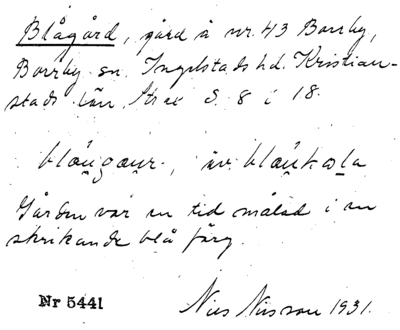 Blågård, gård å nr. 43 Borrby,
Borrby sn. Ingelstads hd. Kristian-
stads län, Strax S. 8 i 18.
blåu̯gau̯r, äv. blåu̯kala
Gården var en tid målad i en
skrikande blå färg.
Nr 5441
Nils Nilsson 1931.